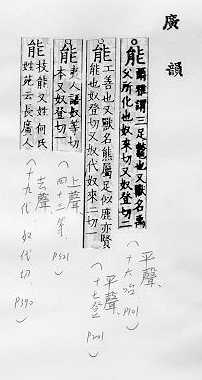 廣韻
能 爾雅謂三足鼈也又獸名禹
父所化也奴來切又奴登切二
能 工善也又獸名熊屬足似鹿亦賢
能也奴登切又奴代奴來二切一
能 夫人諾奴等切
本又奴登切一
能 技能又姓何氏
姓苑云長廣人
平聲
(十六咍 P101)
平聲
(十七登 P201)
上聲
(四十三等 P321)
去聲
(十九代 奴代切 P390)